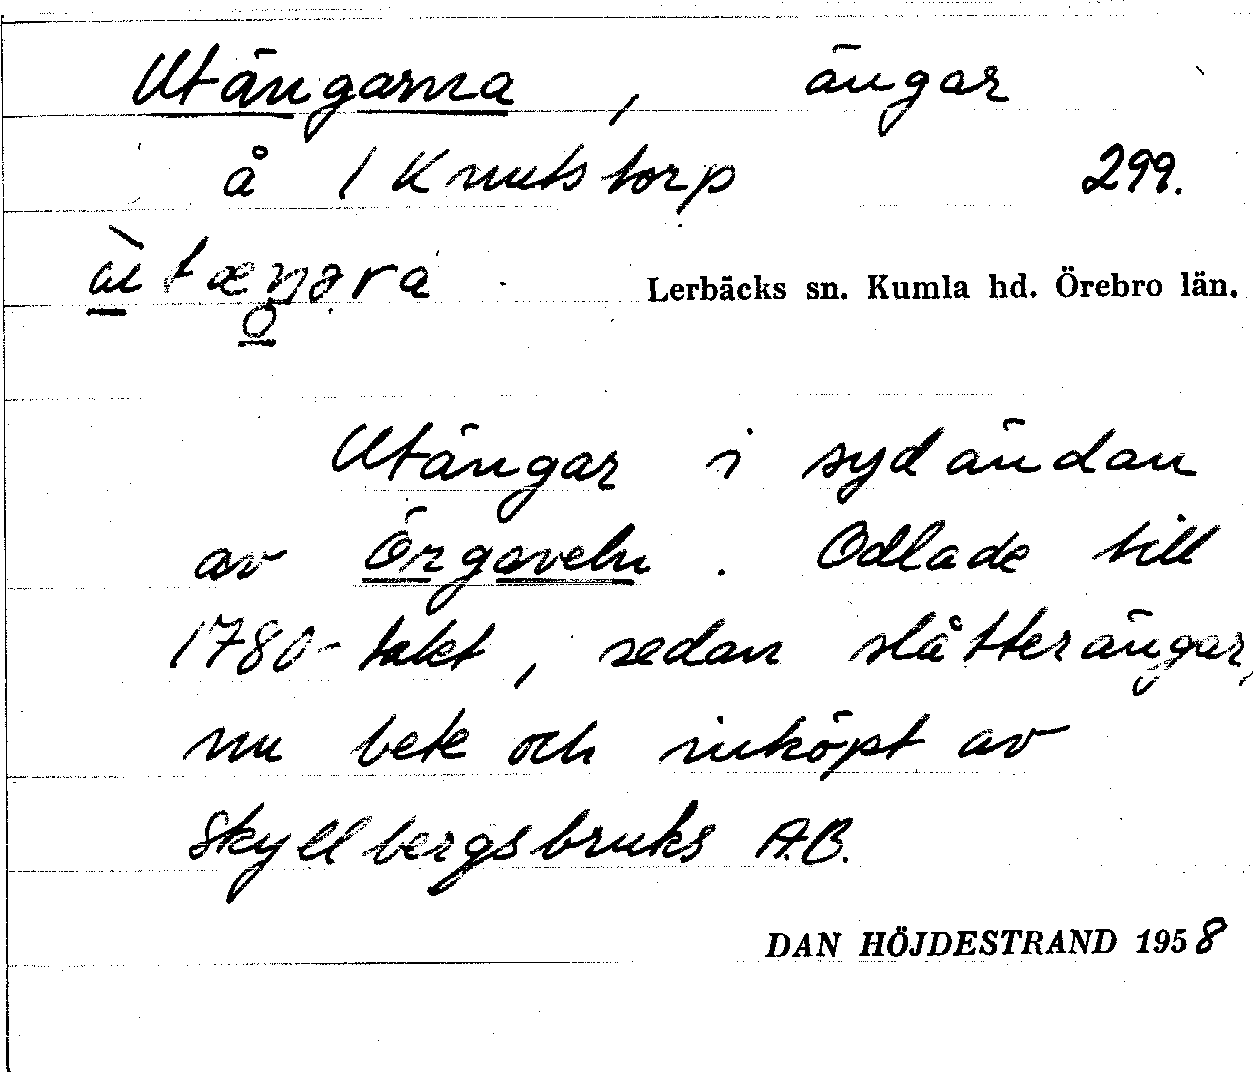 Utängarna, ängar
å 1 Knutstorp 299.
Lerbäcks sn. Kumla hd. Örebro län.
Utängar i sydändan
av Örgaveln. Odlade till
1780-talet, sedan slåtterängar,
nu bete och inköpt av
Skyllbergsbruks A.B.
DAN HÖJDESTRAND 1958